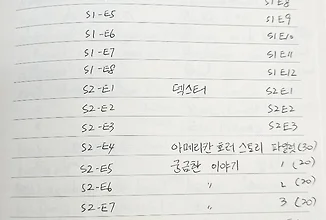 S1 E8
S1-E5 S1 E9
S1-E6 S1 E10
S1-E7 S1 E11
S1-E8 S1 E12
S2-E1 덱스터 S2 E1
S2-E2 S2 E2
S2-E3 S2 E3
S2-E4 아메리칸 호러 스토리 파일럿 (30)
S2-E5 궁금한 이야기 1 (20)
S2-E6 〃 2 (20)
S2-E7 〃 3 (20)